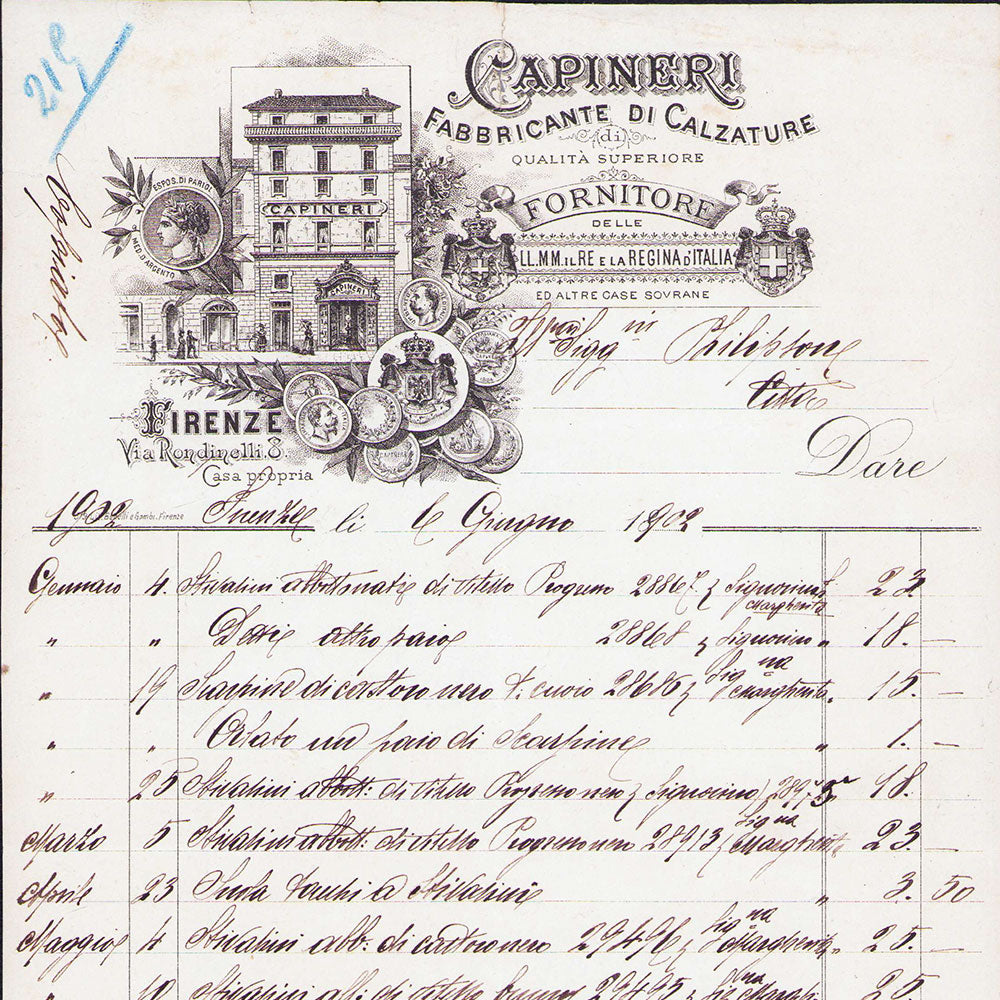 215
CAPINERI
FABBRICANTE DI CALZATURE
(di)
QUALITÀ SUPERIORE
FORNITORE
DELLE
LL.MM. IL RE E LA REGINA D'ITALIA
ED ALTRE CASE SOVRANE
ESPOS. DI PARIGI
MED. D'ARGENTO
CAPINERI
CAPINERI
Sigg
Philipson
Città
FIRENZE
Via Rondinelli. 8.
Casa propria
Dare
1902 Firenze li 6 Giugno 1902
Gambi. Firenze
Gennaio 4. Stivalini abbottonati di vitello Progresso 28867 Signorina Margherita £ 23
" " Detti altro paio 28868 Signorino " 18. —
" 19 Scarpine di castoro nero t. cuoio 28686 Sig na Margherita " 15. —
" " Orlato un paio di Scarpine " 1. —
" 25 Stivalini abbott: di vitello Progresso nero Signorino 18.
Marzo 5 Stivalini abbott: di vitello Progresso nero 28913 Sig na Margherita 23. —
Aprile 23 Suola tacchi a Stivalini " 3. 50
Maggio 4 Stivalini abb: di castoro nero 29496 Sig na Margherita " 25. —
" 10 Stivalini abb: di vitello 29495 25